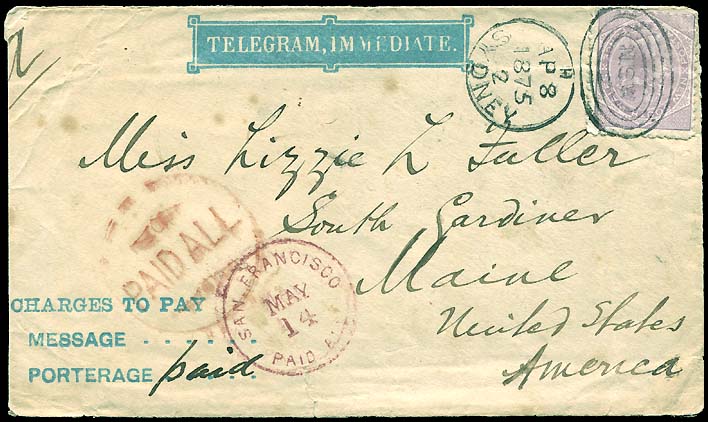 TELEGRAM, IMMEDIATE.
SYDNEY
H
AP 8
1875
2
Miss Lizzie L Fuller
South Gardiner
Maine
United States
America
PAID ALL
SAN FRANCISCO
MAY
14
PAID
CHARGES TO PAY
MESSAGE . . . . . .
PORTERAGE paid . .